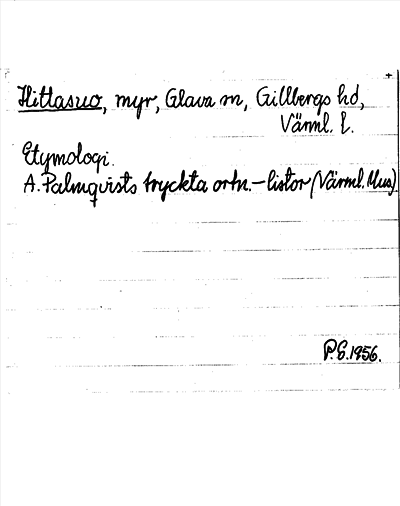 Hittasuo, myr, Glava sn, Gillbergs hd,
Värml. l.
Etymologi.
A. Palmqvists tryckta ortn.-listor (Värml. Mus)
P.G. 1956.